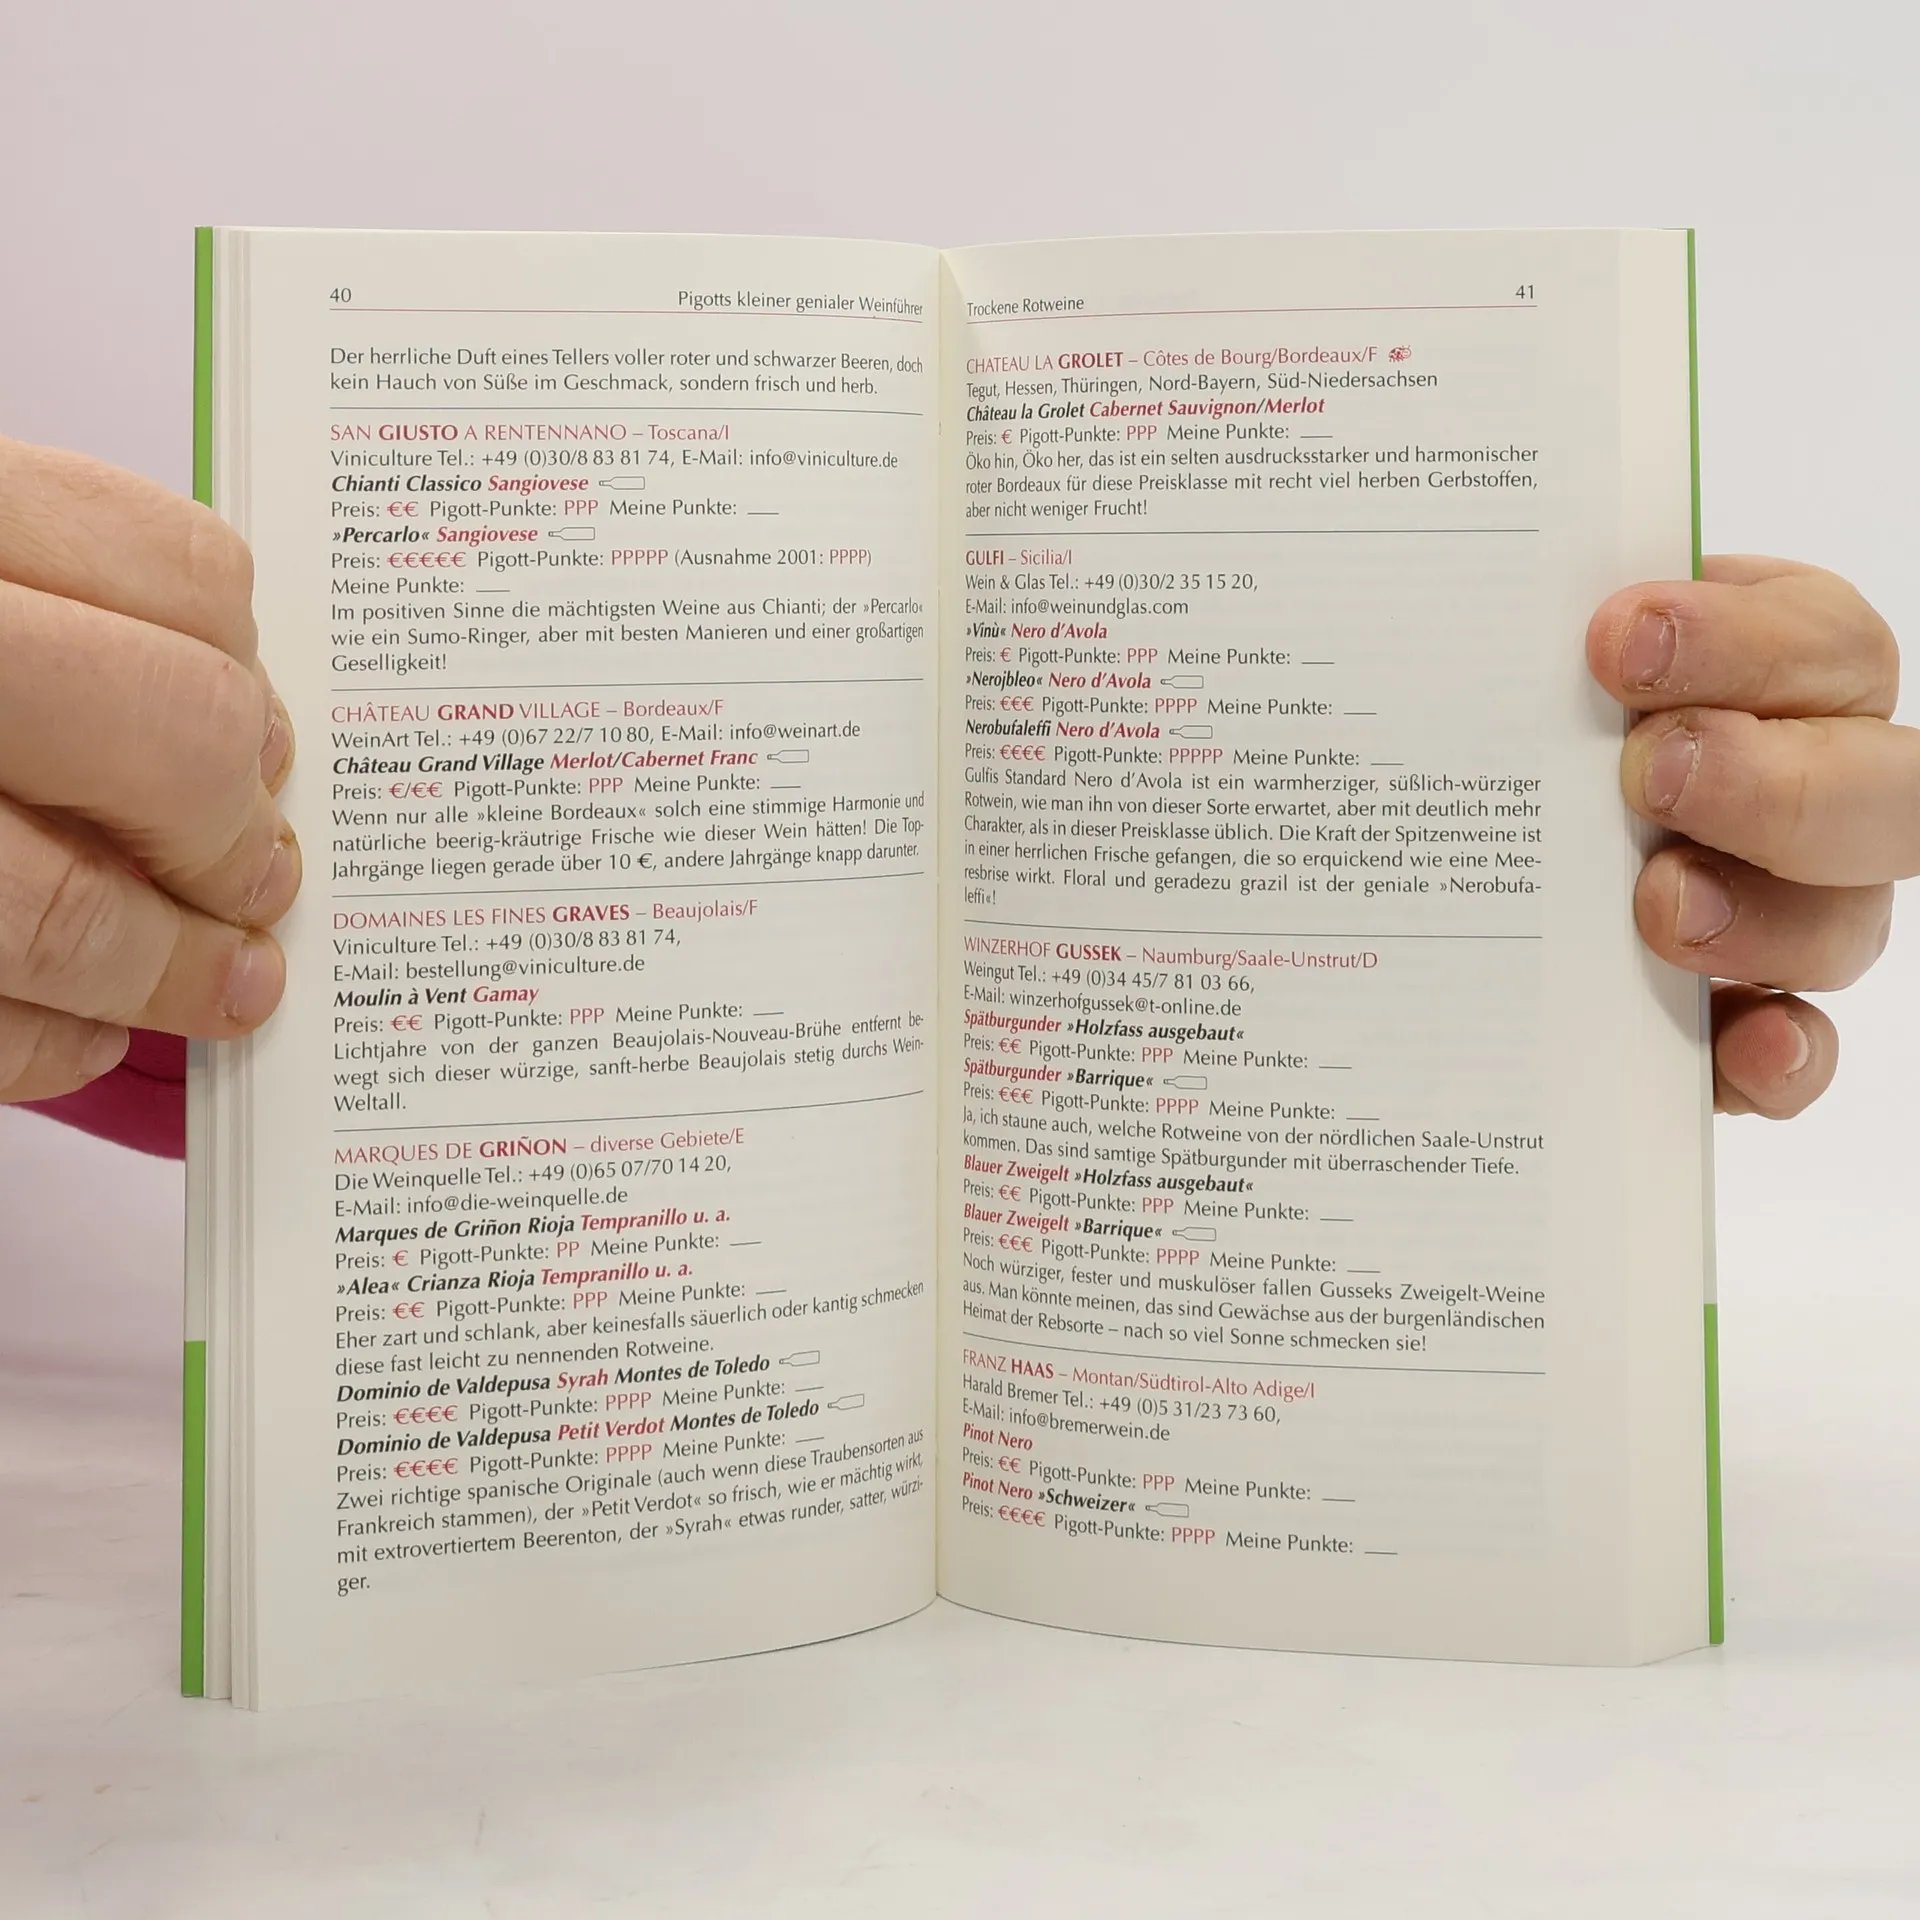 40
Pigotts kleiner genialer Weinführer
Der herrliche Duft eines Tellers voller roter und schwarzer Beeren, doch
kein Hauch von Süße im Geschmack, sondern frisch und herb.
SAN GIUSTO A RENTENNANO – Toscana/I
Viniculture Tel.: +49 (0)30/8 83 81 74, E-Mail: info@viniculture.de
Chianti Classico Sangiovese
Preis: €€ Pigott-Punkte: PPP Meine Punkte: ___
»Percarlo« Sangiovese
Preis: €€€€€ Pigott-Punkte: PPPPP (Ausnahme 2001: PPPP)
Meine Punkte: ___
Im positiven Sinne die mächtigsten Weine aus Chianti; der »Percarlo«
wie ein Sumo-Ringer, aber mit besten Manieren und einer großartigen
Geselligkeit!
CHÂTEAU GRAND VILLAGE – Bordeaux/F
WeinArt Tel.: +49 (0)67 22/7 10 80, E-Mail: info@weinart.de
Château Grand Village Merlot/Cabernet Franc
Preis: €/€€ Pigott-Punkte: PPP Meine Punkte: ___
Wenn nur alle »kleine Bordeaux« solch eine stimmige Harmonie und
natürliche beerig-kräutrige Frische wie dieser Wein hätten! Die Top-
Jahrgänge liegen gerade über 10 €, andere Jahrgänge knapp darunter.
DOMAINES LES FINES GRAVES – Beaujolais/F
Viniculture Tel.: +49 (0)30/8 83 81 74,
E-Mail: bestellung@viniculture.de
Moulin à Vent Gamay
Preis: €€ Pigott-Punkte: PPP Meine Punkte: ___
Lichtjahre von der ganzen Beaujolais-Nouveau-Brühe entfernt be-
wegt sich dieser würzige, sanft-herbe Beaujolais stetig durchs Wein-
Weltall.
MARQUES DE GRIÑON – diverse Gebiete/E
Die Weinquelle Tel.: +49 (0)65 07/70 14 20,
E-Mail: info@die-weinquelle.de
Marques de Griñon Rioja Tempranillo u. a.
Preis: € Pigott-Punkte: PP Meine Punkte: ___
»Alea« Crianza Rioja Tempranillo u. a.
Preis: €€ Pigott-Punkte: PPP Meine Punkte: ___
Eher zart und schlank, aber keinesfalls säuerlich oder kantig schmecken
diese fast leicht zu nennenden Rotweine.
Dominio de Valdepusa Syrah Montes de Toledo
Preis: €€€€ Pigott-Punkte: PPPP Meine Punkte: ___
Dominio de Valdepusa Petit Verdot Montes de Toledo
Preis: €€€€ Pigott-Punkte: PPPP Meine Punkte: ___
Zwei richtige spanische Originale (auch wenn diese Traubensorten aus
Frankreich stammen), der »Petit Verdot« so frisch, wie er mächtig wirkt,
mit extrovertiertem Beerenton, der »Syrah« etwas runder, satter, würzi-
ger.
Trockene Rotweine
41
CHATEAU LA GROLET – Côtes de Bourg/Bordeaux/F
Tegut, Hessen, Thüringen, Nord-Bayern, Süd-Niedersachsen
Château la Grolet Cabernet Sauvignon/Merlot
Preis: € Pigott-Punkte: PPP Meine Punkte: ___
Öko hin, Öko her, das ist ein selten ausdrucksstarker und harmonischer
roter Bordeaux für diese Preisklasse mit recht viel herben Gerbstoffen,
aber nicht weniger Frucht!
GULFI – Sicilia/I
Wein & Glas Tel.: +49 (0)30/2 35 15 20,
E-Mail: info@weinundglas.com
»Vinù« Nero d'Avola
Preis: € Pigott-Punkte: PPP Meine Punkte: ___
»Nerojbleo« Nero d'Avola
Preis: €€€ Pigott-Punkte: PPPP Meine Punkte: ___
Nerobufaleffi Nero d'Avola
Preis: €€€€ Pigott-Punkte: PPPPP Meine Punkte: ___
Gulfis Standard Nero d'Avola ist ein warmherziger, süßlich-würziger
Rotwein, wie man ihn von dieser Sorte erwartet, aber mit deutlich mehr
Charakter, als in dieser Preisklasse üblich. Die Kraft der Spitzenweine ist
in einer herrlichen Frische gefangen, die so erquickend wie eine Mee-
resbrise wirkt. Floral und geradezu grazil ist der geniale »Nerobufa-
leffi«!
WINZERHOF GUSSEK – Naumburg/Saale-Unstrut/D
Weingut Tel.: +49 (0)34 45/7 81 03 66,
E-Mail: winzerhofgussek@t-online.de
Spätburgunder »Holzfass ausgebaut«
Preis: €€ Pigott-Punkte: PPP Meine Punkte: ___
Spätburgunder »Barrique«
Preis: €€€ Pigott-Punkte: PPPP Meine Punkte: ___
Ja, ich staune auch, welche Rotweine von der nördlichen Saale-Unstrut
kommen. Das sind samtige Spätburgunder mit überraschender Tiefe.
Blauer Zweigelt »Holzfass ausgebaut«
Preis: €€ Pigott-Punkte: PPP Meine Punkte: ___
Blauer Zweigelt »Barrique«
Preis: €€€ Pigott-Punkte: PPPP Meine Punkte: ___
Noch würziger, fester und muskulöser fallen Gusseks Zweigelt-Weine
aus. Man könnte meinen, das sind Gewächse aus der burgenländischen
Heimat der Rebsorte – nach so viel Sonne schmecken sie!
FRANZ HAAS – Montan/Südtirol-Alto Adige/I
Harald Bremer Tel.: +49 (0)5 31/23 73 60,
E-Mail: info@bremerwein.de
Pinot Nero
Preis: €€ Pigott-Punkte: PPP Meine Punkte: ___
Pinot Nero »Schweizer«
Preis: €€€€ Pigott-Punkte: PPPP Meine Punkte: ___